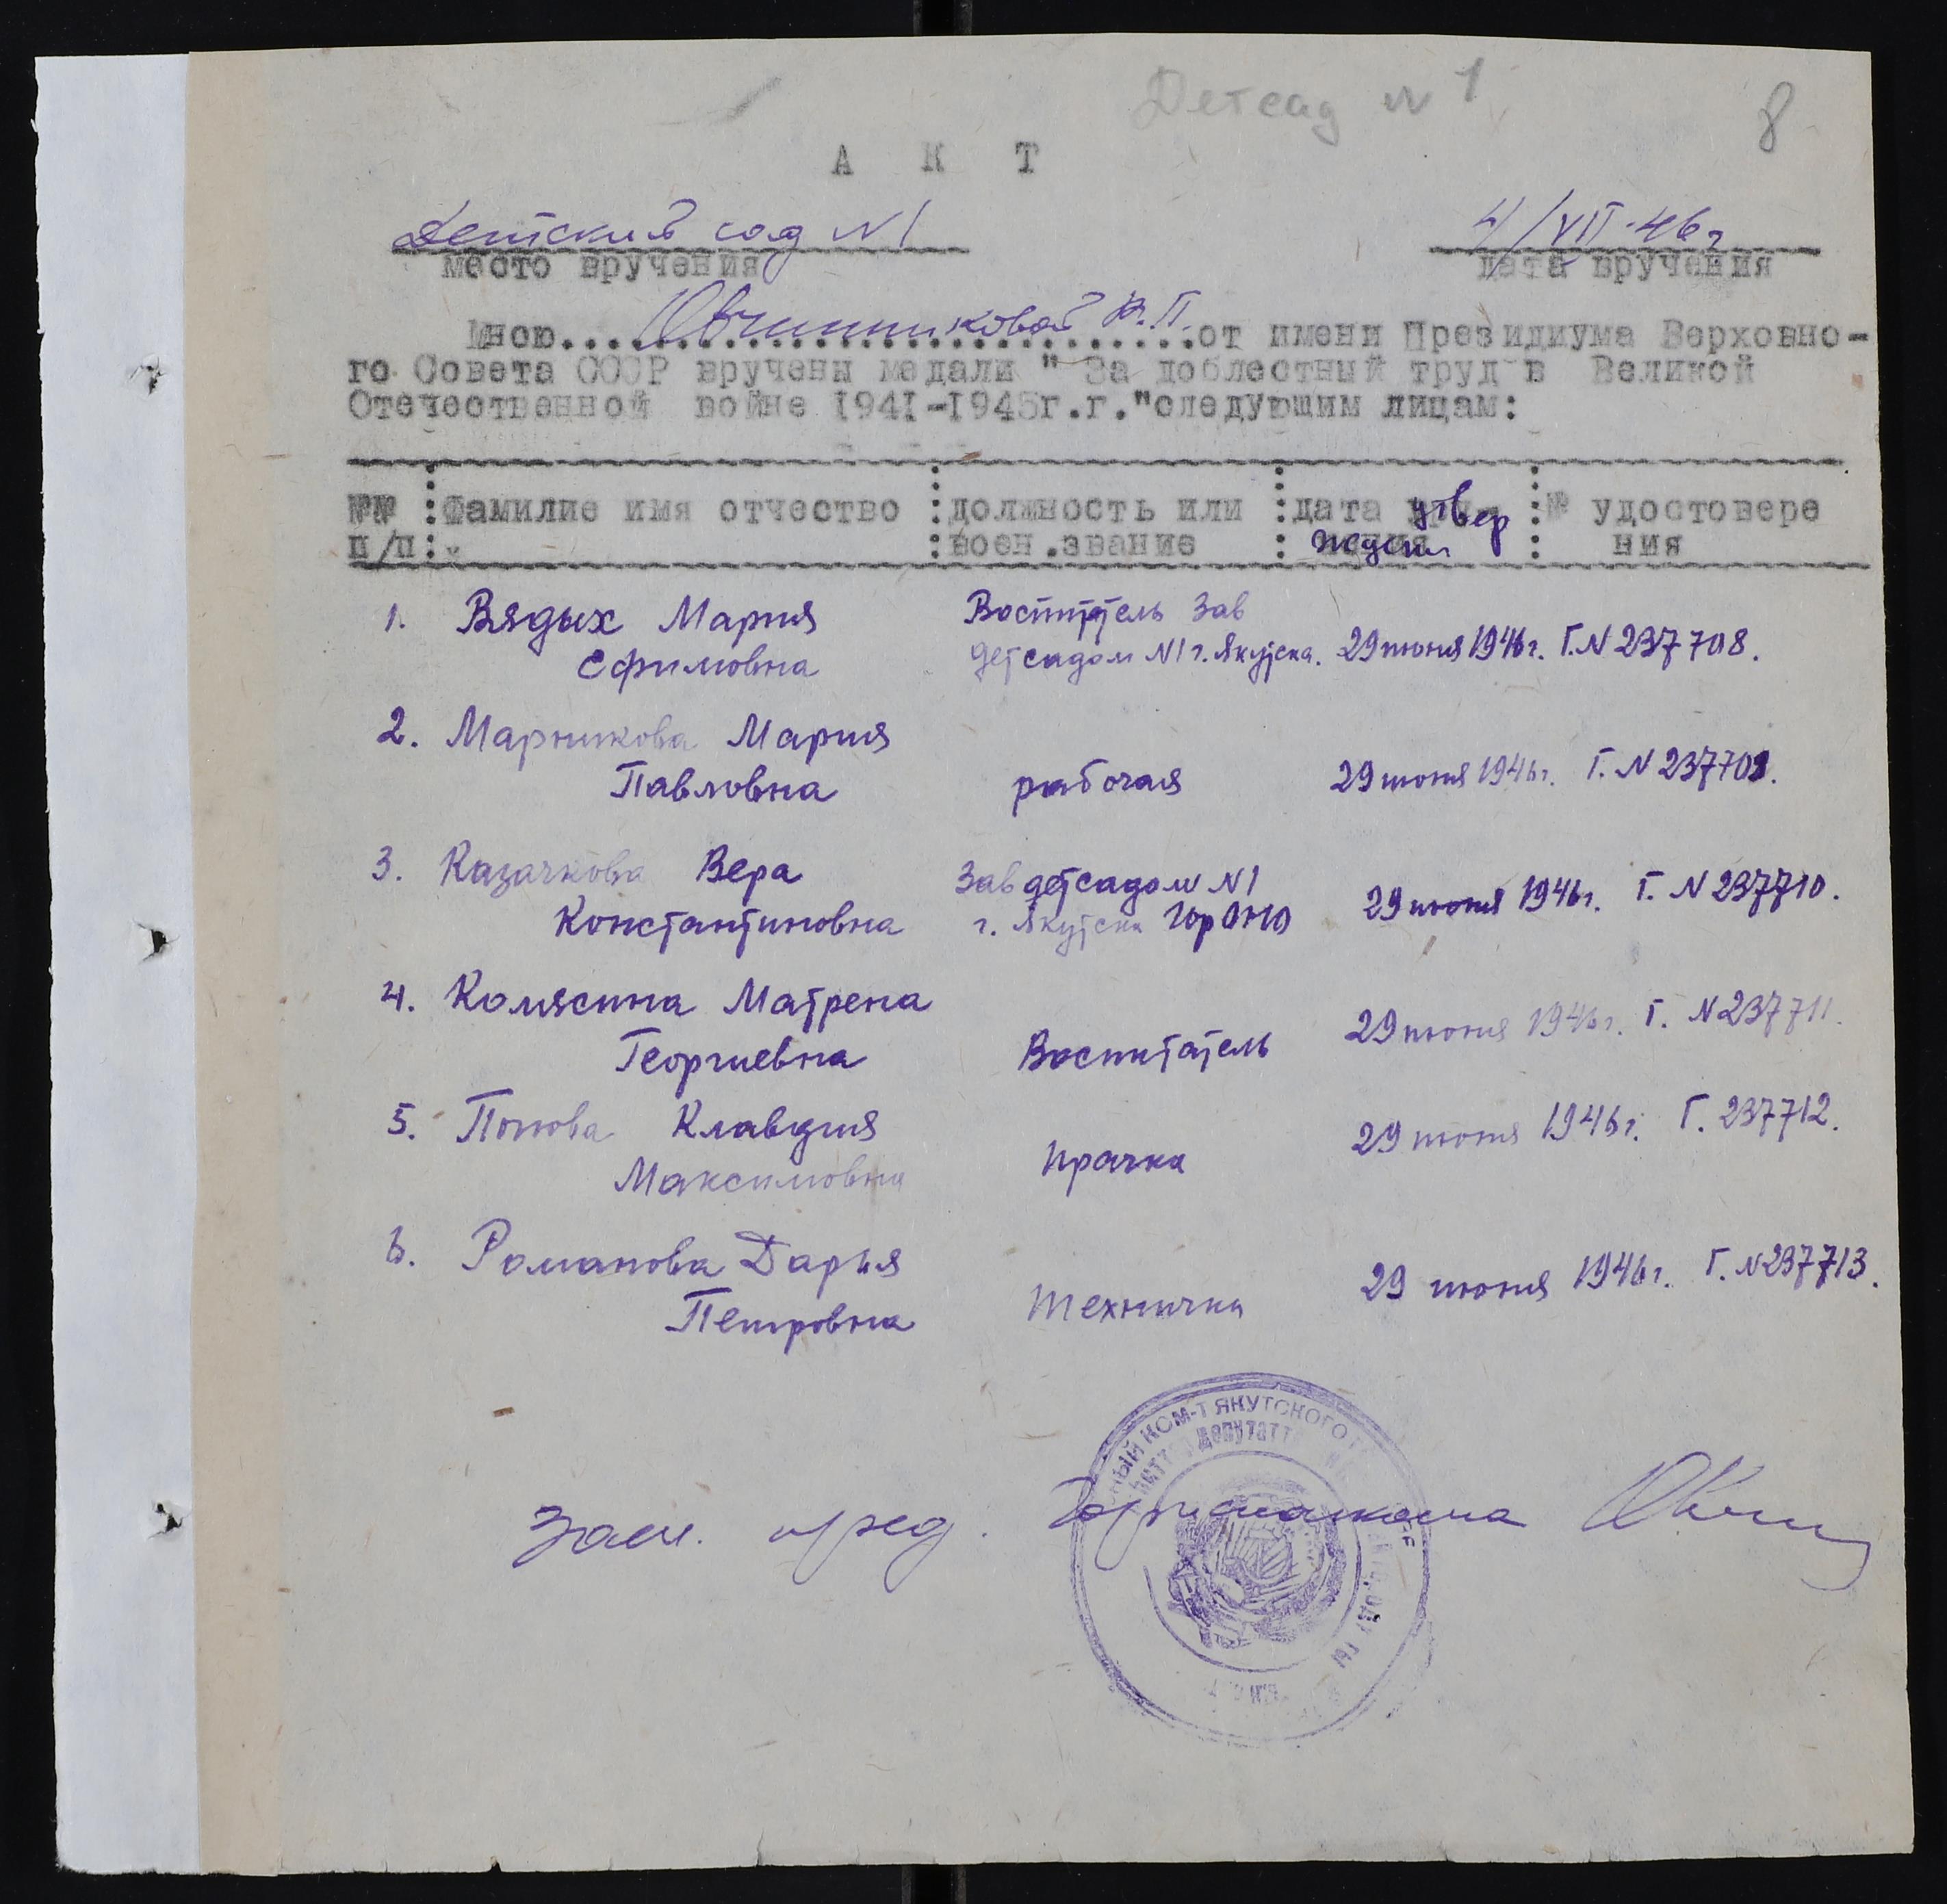 Детсад № 1
8
А К Т
Детский сад №1
4/VII-46г
место вручения
дата вручения
Мною....Овчинниковой В.П....от имени Президиума Верховно-
го Совета СССР вручены медали " За доблестный труд в Великой
Отечественной войне 1941-1945г.г."следующим лицам:
№№ : Фамилие имя отчество : должность или : дата утвер : № удостовере
п/п : : воен.звание : ждения : ния
1. Вядых Мария Воспитатель Зав
Ефимовна детсадом №1 г. Якутска. 29 июня 1946г. Г.№ 237708.
2. Марникова Мария
Павловна рабочая 29 июня 1946г. Г.№ 237709.
3. Казачкова Вера Зав детсадом №1
Константиновна г. Якутска ГорОНО 29 июня 1946г. Г. № 237710.
4. Комясина Матрена
Георгиевна Воспитатель 29 июня 1946г. Г. № 237711.
5. Попова Клавдия
Максимовна прачка 29 июня 1946г. Г. 237712.
6. Романова Дарья
Петровна техничка 29 июня 1946г. Г. №237713.
КОМ-Т ЯКУТСКОГО
Зам. пред. Горисполкома